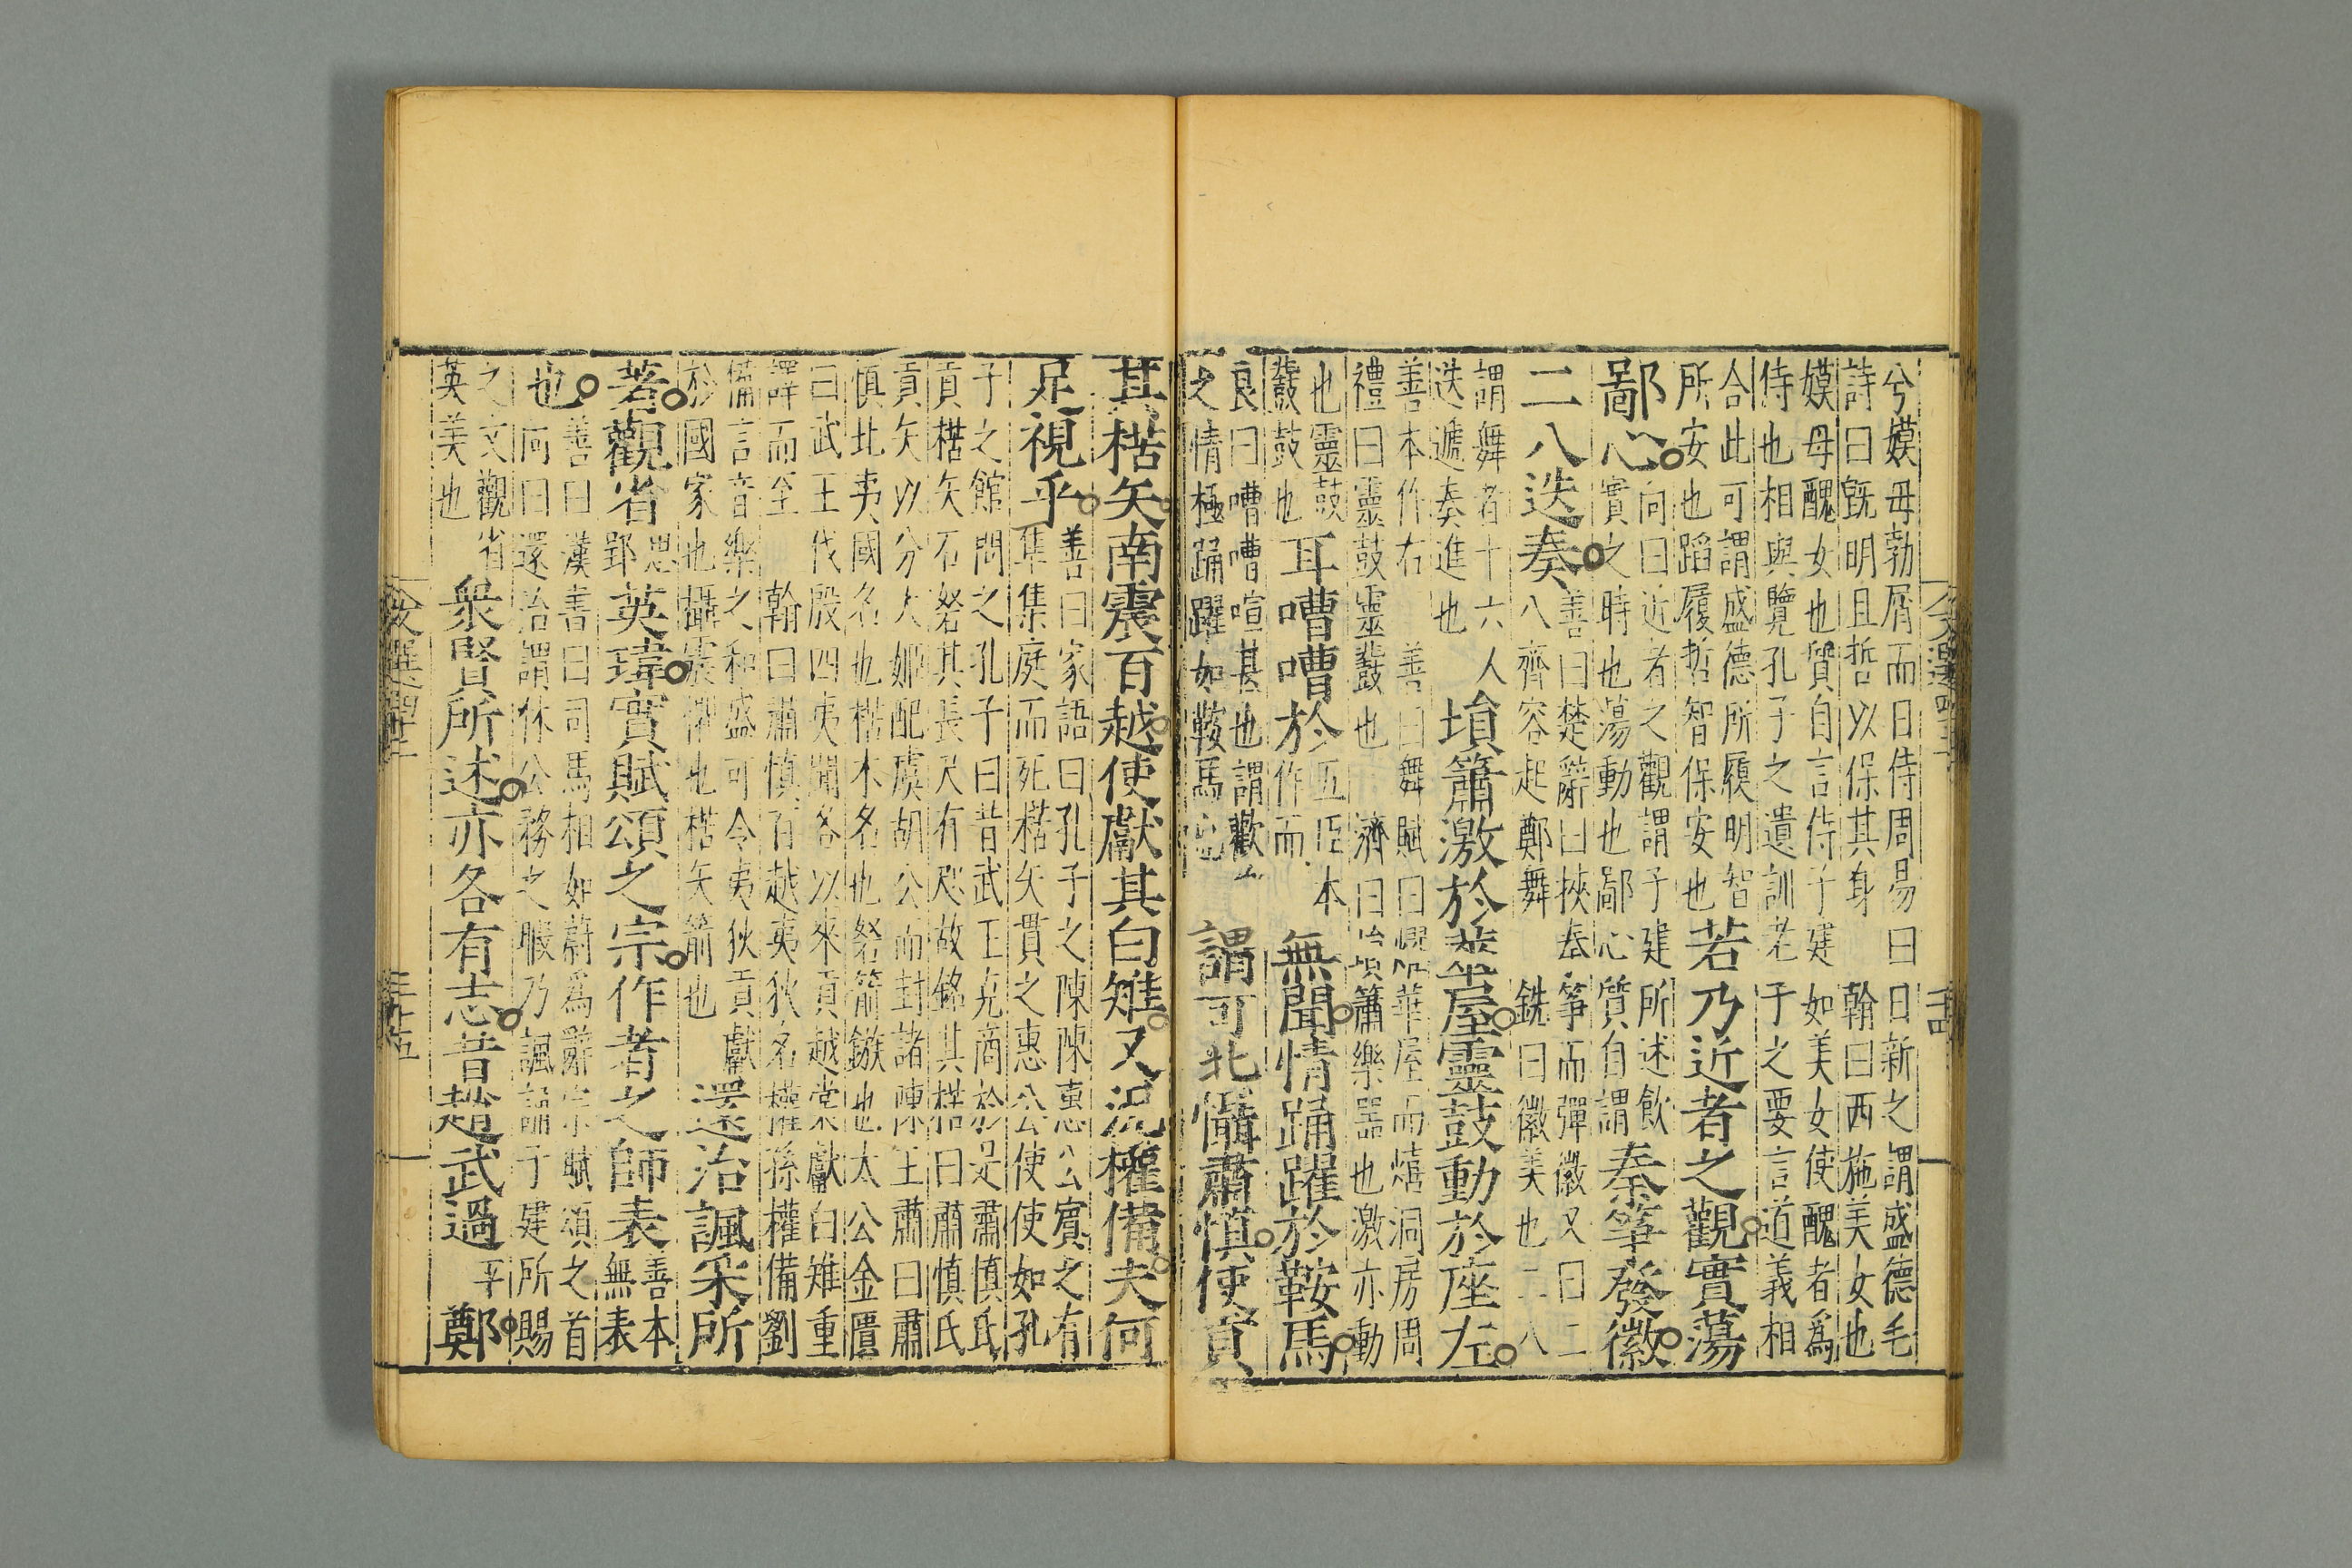 兮嫫母勃屑而日侍周易曰日新之謂盛德毛
詩曰旣明且哲以保其身 翰曰西施美女也
嫫母醜女也質自言侍子建如美女使醜者爲
侍也相與覽孔子之遺訓老子之要言道義相
合此可謂盛德所履明智
所安也蹈履哲智保安也
若乃近者之觀實蕩
鄙心
向曰近者之觀謂子建所述飲
實之時也蕩動也鄙心質自謂
秦箏發徽
二八迭奏
善曰楚辭曰挾秦箏而彈徽又曰二
八齊容起鄭舞 銑曰徽美也二八
謂舞者十六人
迭遞奏進也
塤簫激於華屋靈鼓動於座左
善本作右 善曰舞賦曰燿華屋而熺洞房周
禮曰靈鼓靈鼗也 濟曰塤簫樂器也激亦動
也靈鼓
鼗鼓也
耳嘈嘈於
五臣本
作而
無聞情踊躍於鞍馬
良曰嘈嘈喧甚也謂歡
之情極踊躍如鞍馬
謂可北懾肅慎使貢
其楛矢南震百越使獻其白雉又況權備夫何
足視乎
善曰家語曰孔子之陳陳惠公賓之有
隼集庭而死楛矢貫之惠公使使如孔
子之館問之孔子曰昔武王克商於是肅慎氏
貢楛矢石砮其長尺有咫故銘其楛曰肅慎氏
貢矢以分大姬配虞胡公而封諸陳王肅曰肅
慎北夷國名也楛木名也砮箭鏃也太公金匱
曰武王伐殷四夷聞各以來貢越裳獻白雉重
譯而至 翰曰肅慎百越夷狄名權孫權備劉
備言音樂之和盛可令夷狄貢獻
於國家也攝震懼也楛矢箭也
還治諷采所
著觀省
思
郢
英瑋實賦頌之宗作者之師表
善本
無表
也
善曰漢善曰司馬相如蔚爲辭宗賦頌之首
向曰還治謂休公務之暇乃諷誦子建所賜
之文觀省
英美也
衆賢所述亦各有志昔趙武過
平
鄭
文選四十二
文選四十二
三十五